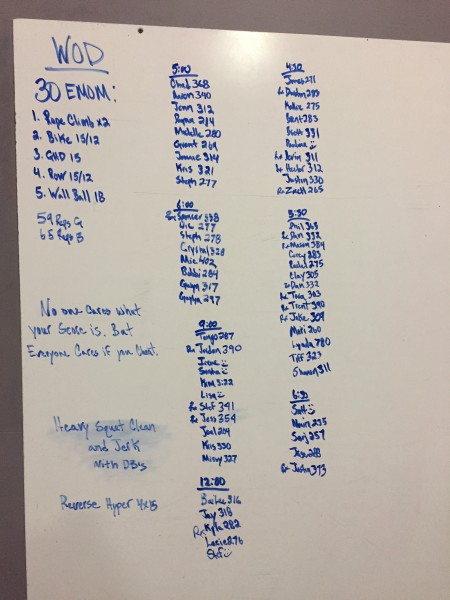 WOD
30 EMOM:
1. Rope Climb x2
2. Bike 15/12
3. GHD 15
4. Row 15/12
5. Wall Ball 18
59 Reps G
65 Reps B
No one Cares what
your Score is. But
Everyone Cares if you Cheat.
Heavy Squat Clean
and Jerk
with DB's
Reverse Hyper 4x15
5:00
Chad 368
Aaron 390
Jenn 312
Ryan 214
Michelle 280
Grant 269
Joanne 314
Kris 321
Steph 277
6:00
Rx Spencer 338
Vic 277
Steph 278
Crystal 328
Mic 402
Bobbi 284
317
297
9:00
287
Rx Jordan 390
Irene
Sasha
Kim 322
Lisa
Rx Stef 341
Rx Jess 354
Joel 214
Kris 330
Missy 327
12:00
Bailee 316
Jay 318
Rx Kyle 282
Lacie 276
Stef
4:30
James 271
Rx 285
275
Brent 283
Scott 331
Pauline
Rx Kevin 311
Rx Hector 312
Justin 330
Rx Zach 265
5:30
Phil 365
Rx Dan 332
Rx Mason 384
Corey 283
Rachel 275
Clay 305
Rx Dan 332
Rx 363
Rx Trent 390
Rx Jake 309
260
Lynda 280
Tiff 323
Shawn 311
6:30
Scott
235
257
288
Rx Justin 373